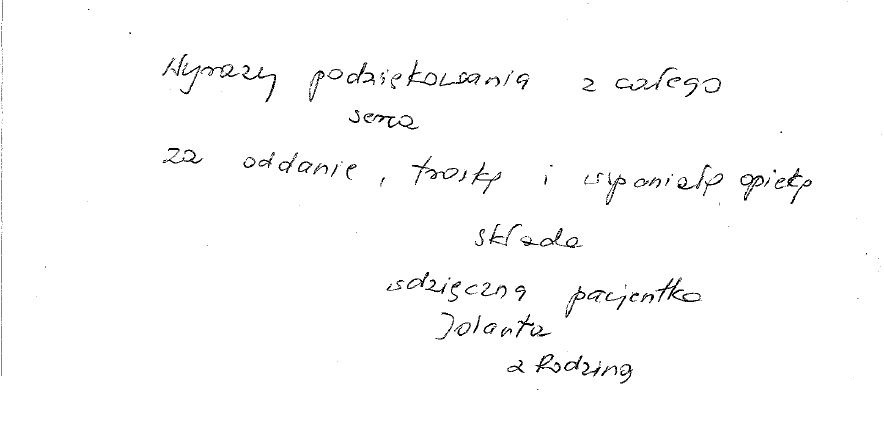 Wyrazy podziękowania z całego
serca
za oddanie, troskę i wspaniałą opiekę
składa
wdzięczna pacjentka
Jolanta
z Rodziną